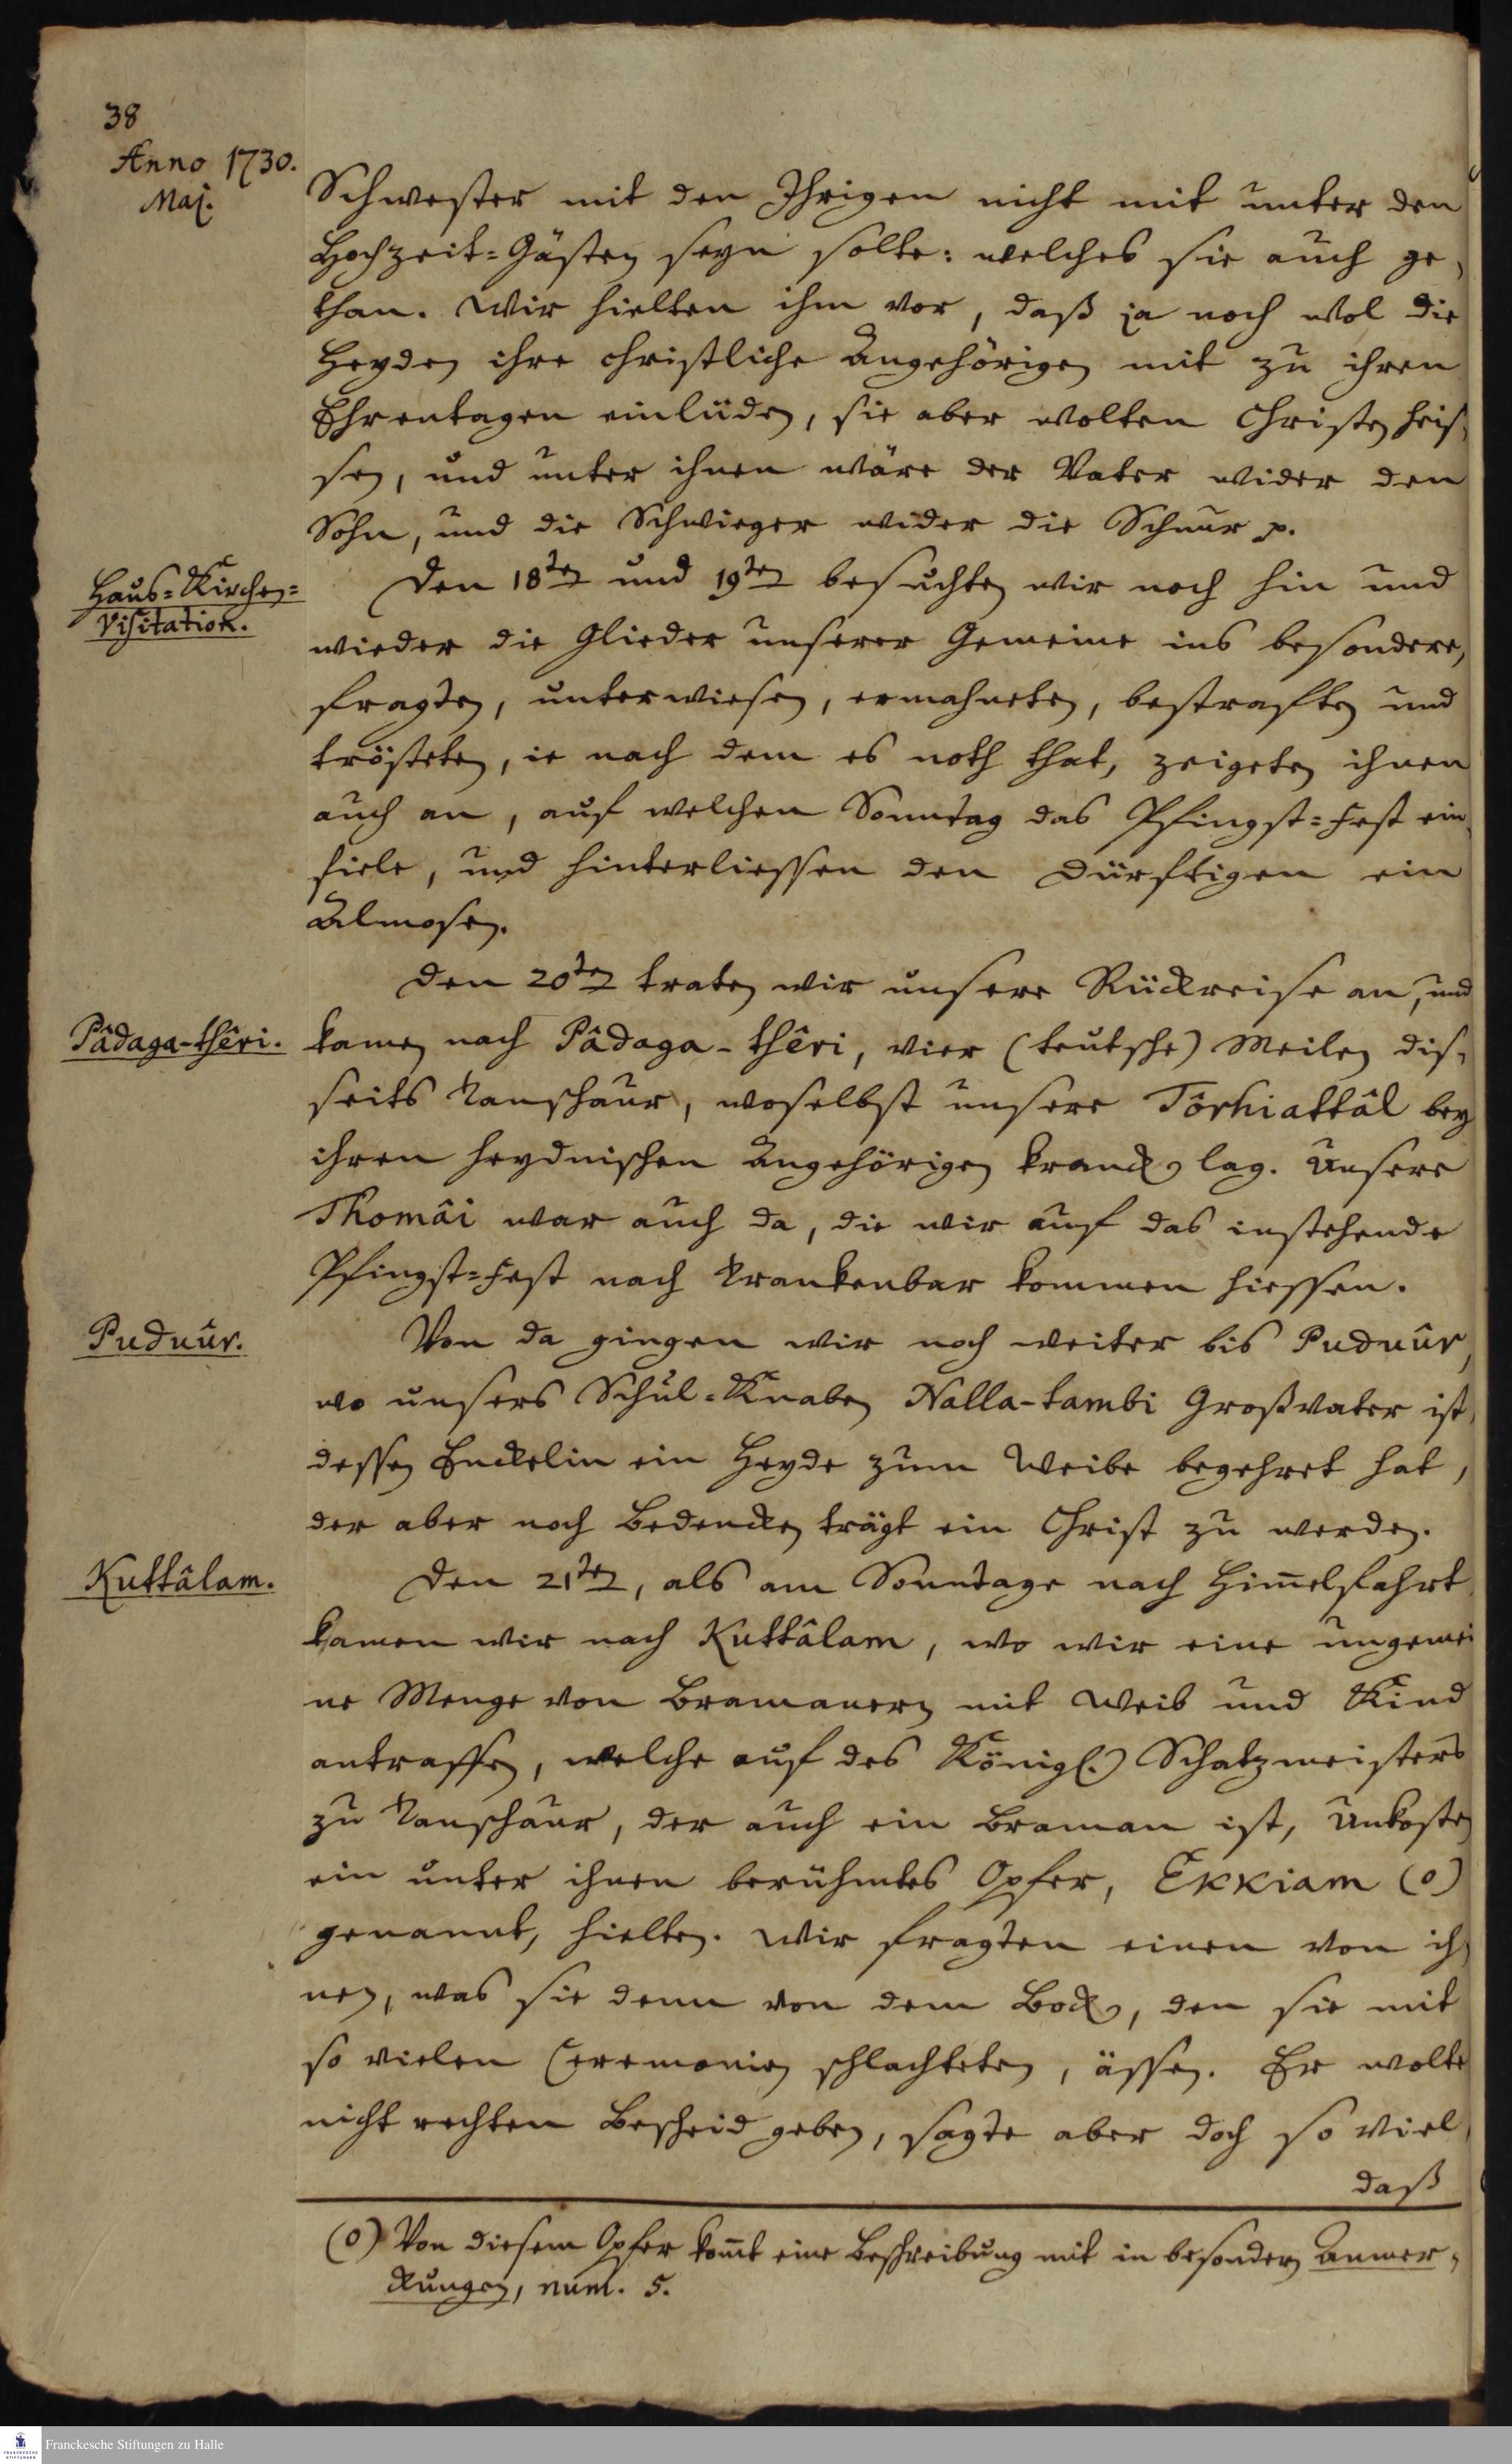 38
Anno 1730.
Maj.
Schwester mit den Ihrigen nicht mit unter den
Hochzeit-Gästen seyn solte: welches sie auch ge-
than. Wir hielten ihm vor, daß ja noch wol die
Heyden ihre christliche Angehörigen mit zu ihren
Ehrentagen einlüden, sie aber wolten Christen heis-
sen, und unter ihnen wäre der Vater wider den
Sohn, und die Schwieger wider die Schnur p.
Haus-Kirchen-
Visitation.
Den 18ten und 19ten besuchten wir noch hin und
wieder die Glieder unserer Gemeine ins besondere,
fragten, unterwiesen, ermahneten, bestraften und
trösteten, ie nach dem es noth that, zeigeten ihnen
auch an, auf welchen Sonntag das Pfingst-Fest ein-
fiele, und hinterliessen den Dürftigen ein
Almosen.
Den 20ten traten wir unsere Rückreise an, und
Pâdaga-thêri.
kamen nach Pâdaga-thêri, vier (teutsche) Meilen dis-
seits Tanschaur, woselbst unsere Tôrhiattâl bey
ihren heydnischen Angehörigen kranck lag. Unsere
Thomâi war auch da, die wir auf das instehende
Pfingst-Fest nach Trankenbar kommen hiessen.
Puduûr.
Von da gingen wir noch weiter bis Puduûr,
wo unsers Schul-Knaben Nalla-tambi Großvater ist,
dessen Enckelin ein Heyde zum Weibe begehret hat,
der aber noch Bedencken trägt ein Christ zu werden.
Kuttâlam.
Den 21ten, als am Sonntage nach Him̅elfahrt
kamen wir nach Kuttâlam, wo wir eine ungemei
ne Menge von Bramanern mit Weib und Kind
antraffen, welche auf des Königl. Schatzmeisters
zu Tanschaur, der auch ein Braman ist, Unkosten
ein unter ihnen berühmtes Opfer, Ekkiam (o)
genannt, hielten. Wir fragten einen von ih-
nen, was sie denn von dem Bock, den sie mit
so vielen Ceremonien schlachteten, ässen. Er wolte
nicht rechten Bescheid geben, sagte aber doch so viel,
daß
(o) Von diesem Opfer kom̅t eine Beschreibung mit in besondern Anmer-
ckungen, num. 5.
Franckesche Stiftungen zu Halle